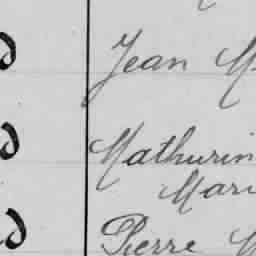 d Jean M
d Mathurin
Mari
d Pierre